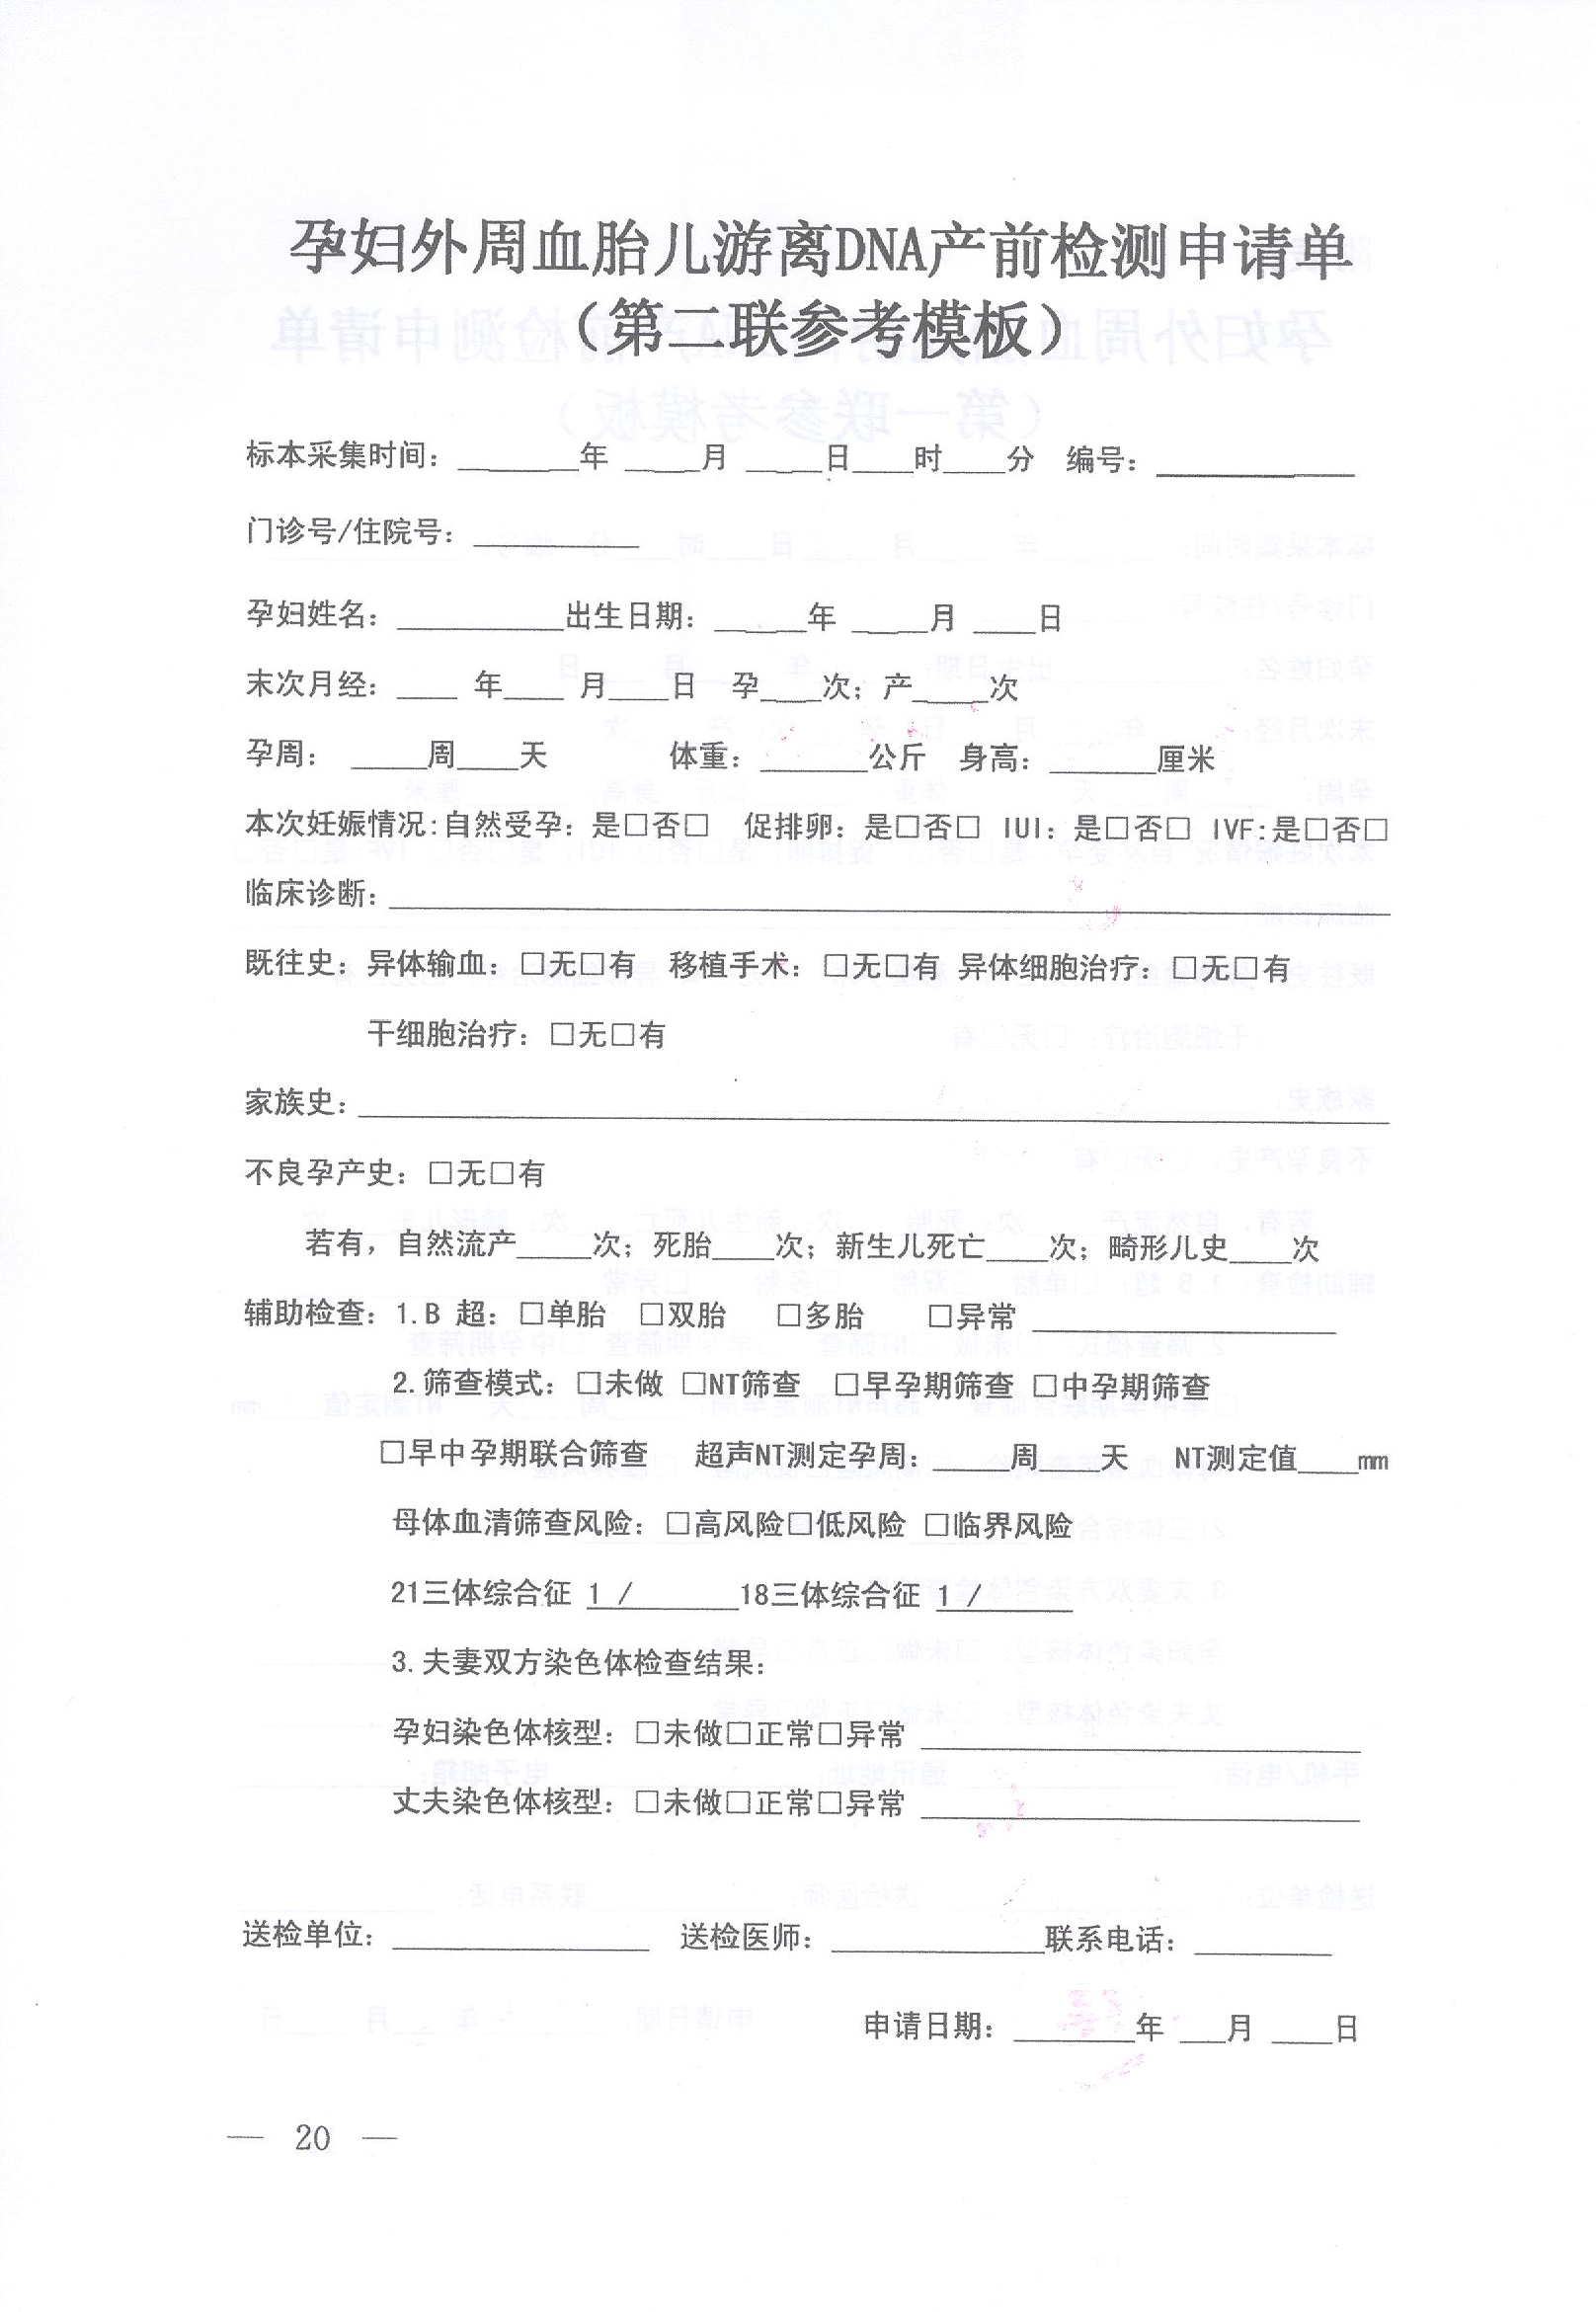 孕妇外周血胎儿游离DNA产前检测申请单
（第二联参考模板）
标本采集时间：________年 _____月 _____日____时____分 编号：_____________
门诊号/住院号：___________
孕妇姓名：___________出生日期：______年 _____月 ____日
末次月经：____ 年____ 月____日 孕____次；产_____次
孕周： _____周____天 体重：_______公斤 身高：_______厘米
本次妊娠情况:自然受孕：是□否□ 促排卵：是□否□ IUI：是□否□ IVF:是□否□
临床诊断：
既往史：异体输血：□无□有 移植手术：□无□有 异体细胞治疗：□无□有
干细胞治疗：□无□有
家族史：
不良孕产史：□无□有
若有，自然流产_____次；死胎____次；新生儿死亡____次；畸形儿史____次
辅助检查：1.B 超：□单胎 □双胎 □多胎 □异常 ____________________
2.筛查模式：□未做 □NT筛查 □早孕期筛查 □中孕期筛查
□早中孕期联合筛查 超声NT测定孕周：_____周____天 NT测定值____mm
母体血清筛查风险：□高风险□低风险 □临界风险
21三体综合征 1 /_______18三体综合征 1 /______
3.夫妻双方染色体检查结果：
孕妇染色体核型：□未做□正常□异常 _____________________________
丈夫染色体核型：□未做□正常□异常 _____________________________
送检单位：_________________ 送检医师：______________联系电话：_________
申请日期：________年 ___月 ____日
— 20 —